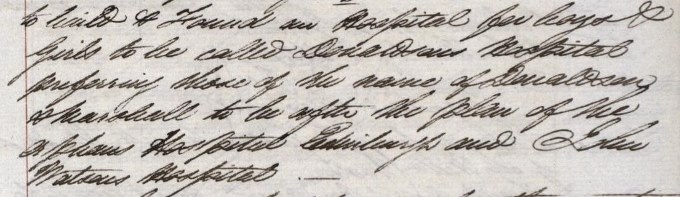 to build & Found an Hospital for boys &
Girls to be called Donaldsons Hospital
preferring those of the name of Donaldson
& Marshall to be after the plan of the
Orphans Hospital Edinburgh and John
Watsons Hospital